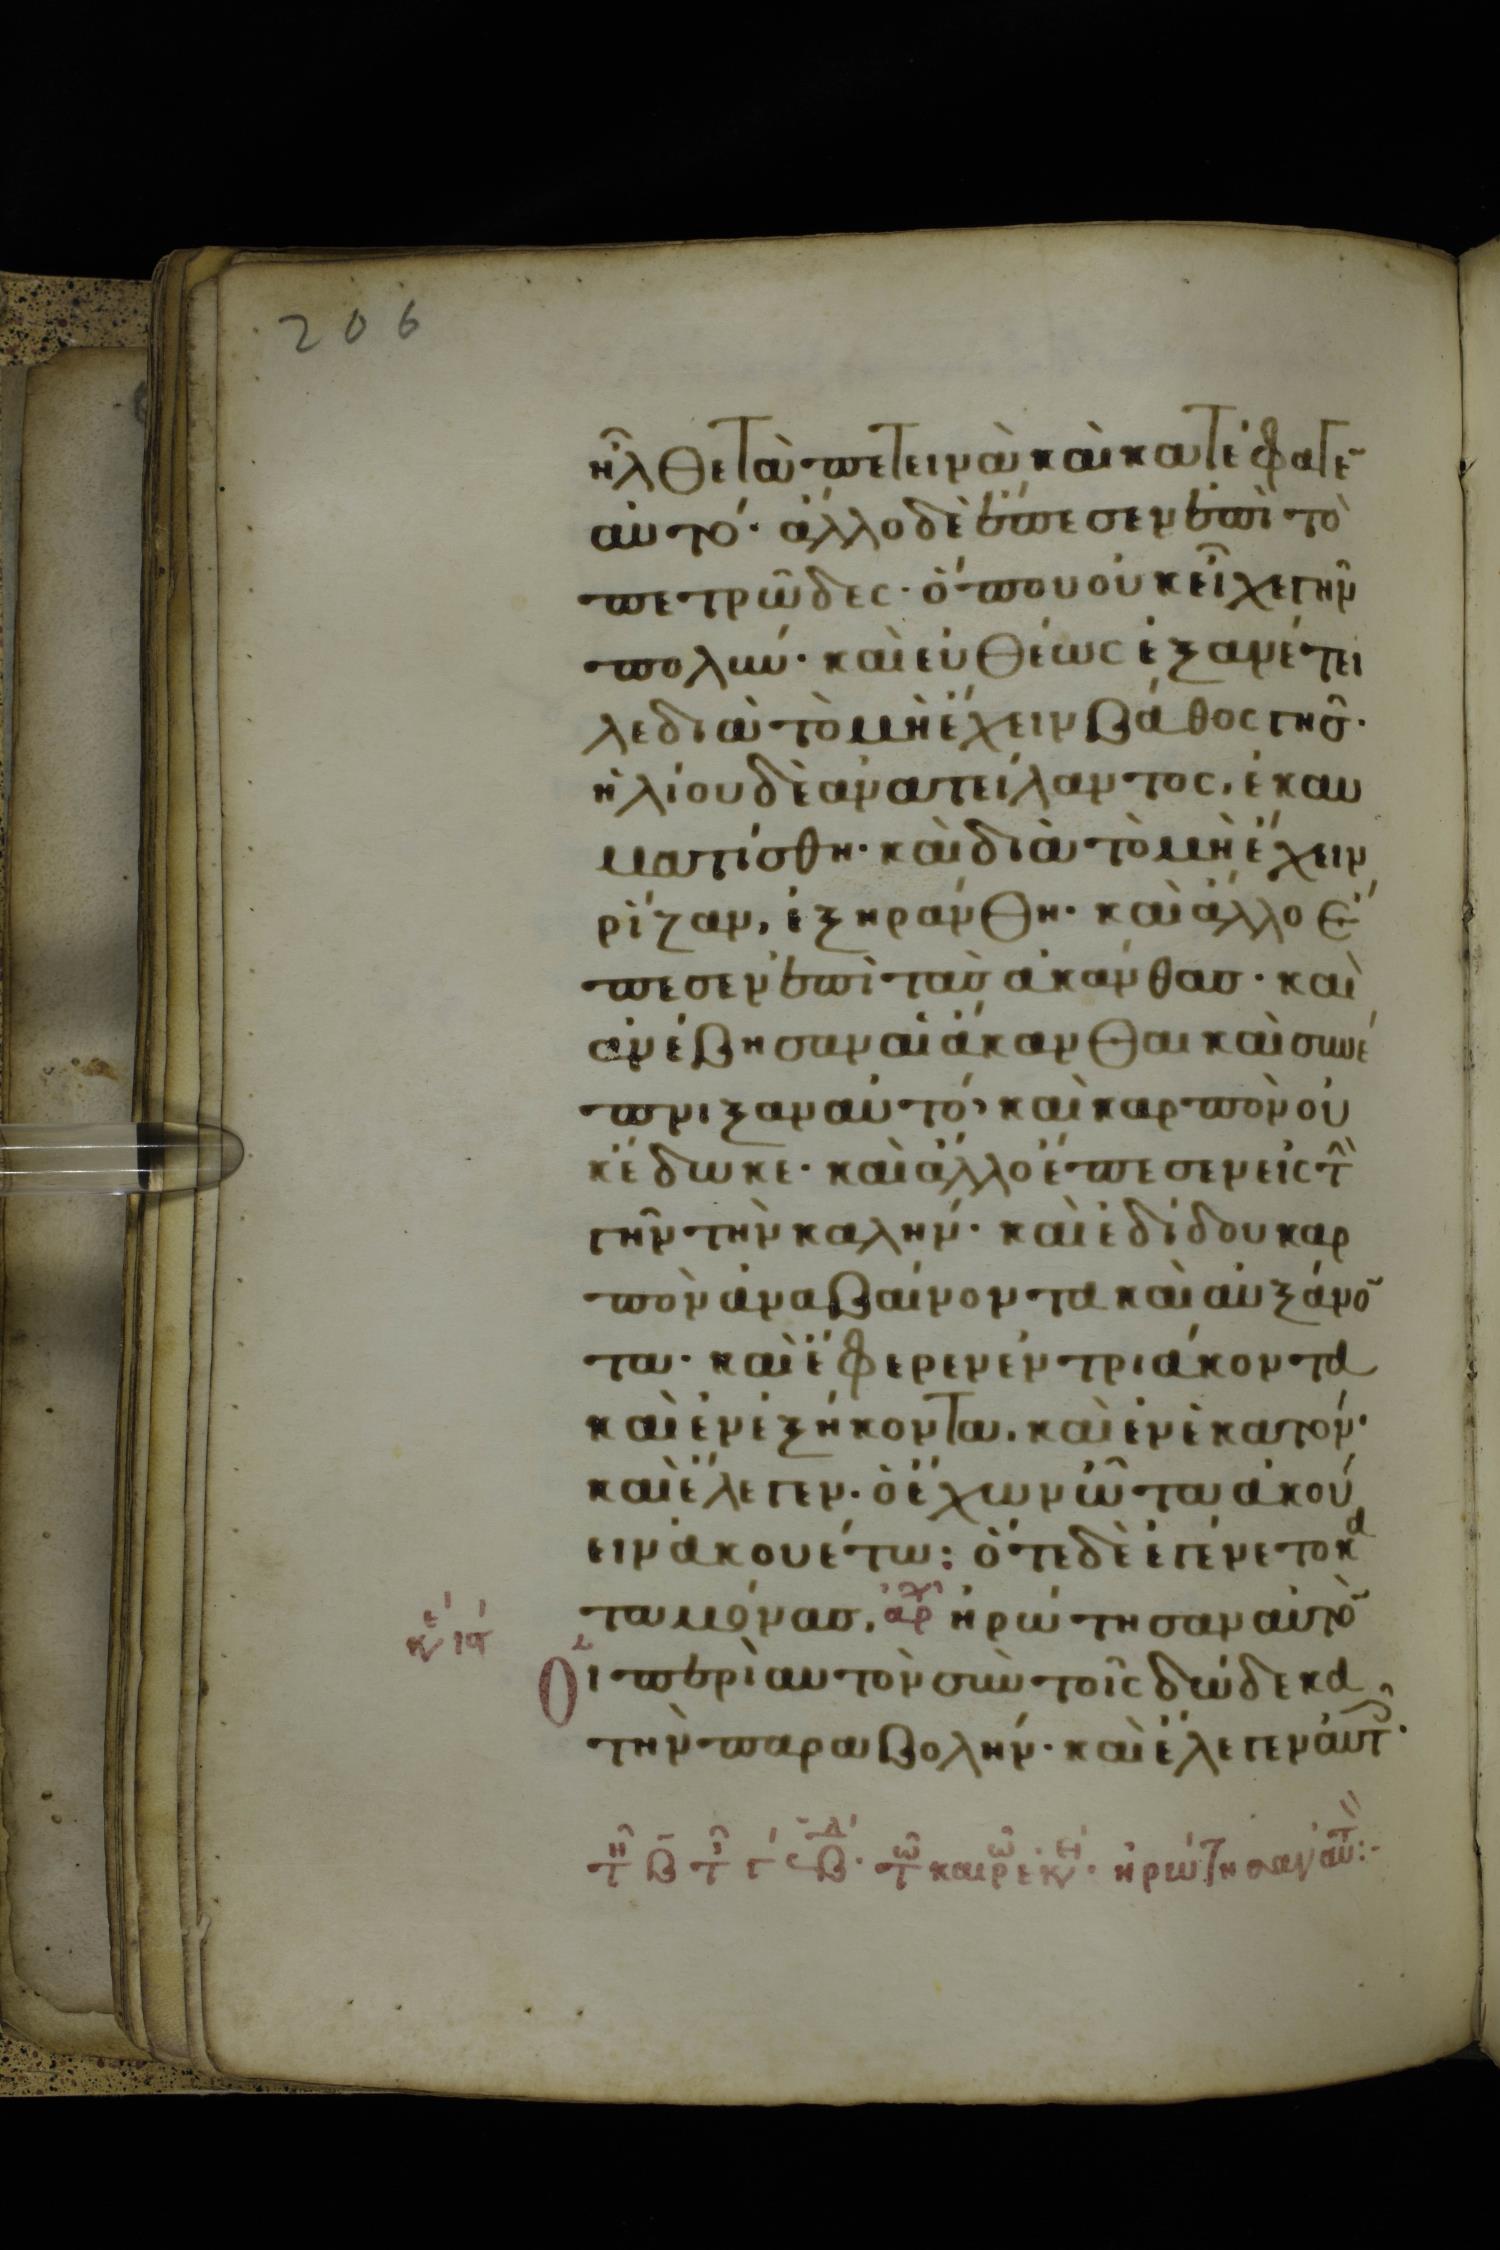 206
ἦλθε τὰ πετεινὰ καὶ κατέφαγε̄
αὐτό· ἄλλο δὲ ἔπεσεν ἐπὶ τὸ
πετρῶδες· ὅπου οὐκ εἶχε γῆν
πολλήν· καὶ εὐθέως ἐξανέτει
λε διὰ τὸ μὴ ἔχειν βάθος γῆσ·
ἡλίου δὲ ἀνατείλαντος, ἐκαυ
ματίσθη· καὶ διὰ τὸ μὴ ἔχειν
ρίζαν, ἐξηράνθη· καὶ ἄλλο ἔ
πεσεν ἐπὶ τὰσ ἀκάνθασ· καὶ
ἀνέβησαν αἱ ἄκανθαι καὶ συνέ
πνιξαν αὐτό, καὶ καρπὸν οὐ
κ ἔδωκε· καὶ ἄλλο ἔπεσεν εἰς τ̂
γῆν τὴν καλήν· καὶ ἐδίδου καρ
πὸν ἀναβαίνοντα καὶ αὐξάνο̄
τα· καὶ ἔφερεν ἐν τριάκοντα
καὶ ἐν ἑξήκοντα. καὶ ἐν ἑκατόν·
καὶ ἔλεγεν· ὁ ἔχων ὦτα ἀκού
ειν ἀκουέτω: ὅτε δὲ ἐγένετο κα
ταμόνασ, ἀρχ ἠρώτησαν αὐτὸ̄
Οἱ περὶ αυτὸν σὺν τοῖς δώδεκα
τὴν παραβολήν· καὶ ἔλεγεν αὐτ·
τη β τ γ ἑβδ β· τω καιρω ἐκει· ἠρώτησαν αὐτ:-